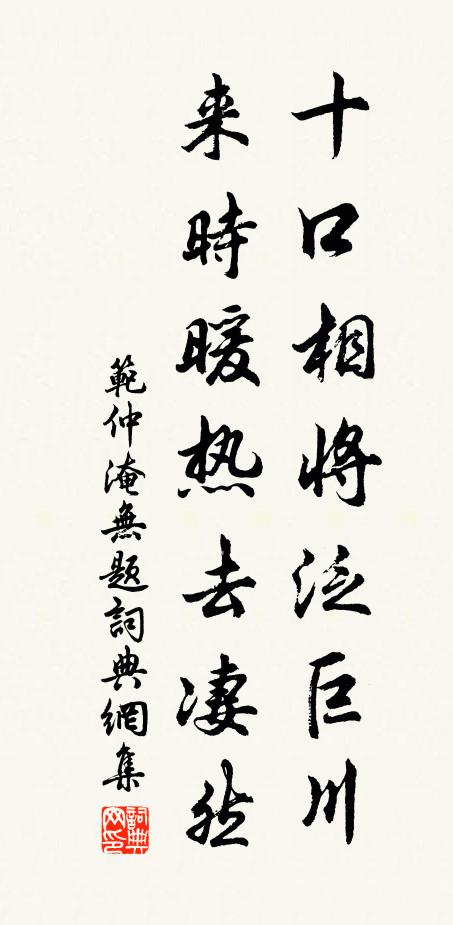 十口相将泛巨川
来時暖热去凄然
範仲淹無題詞典網集
詞典网印